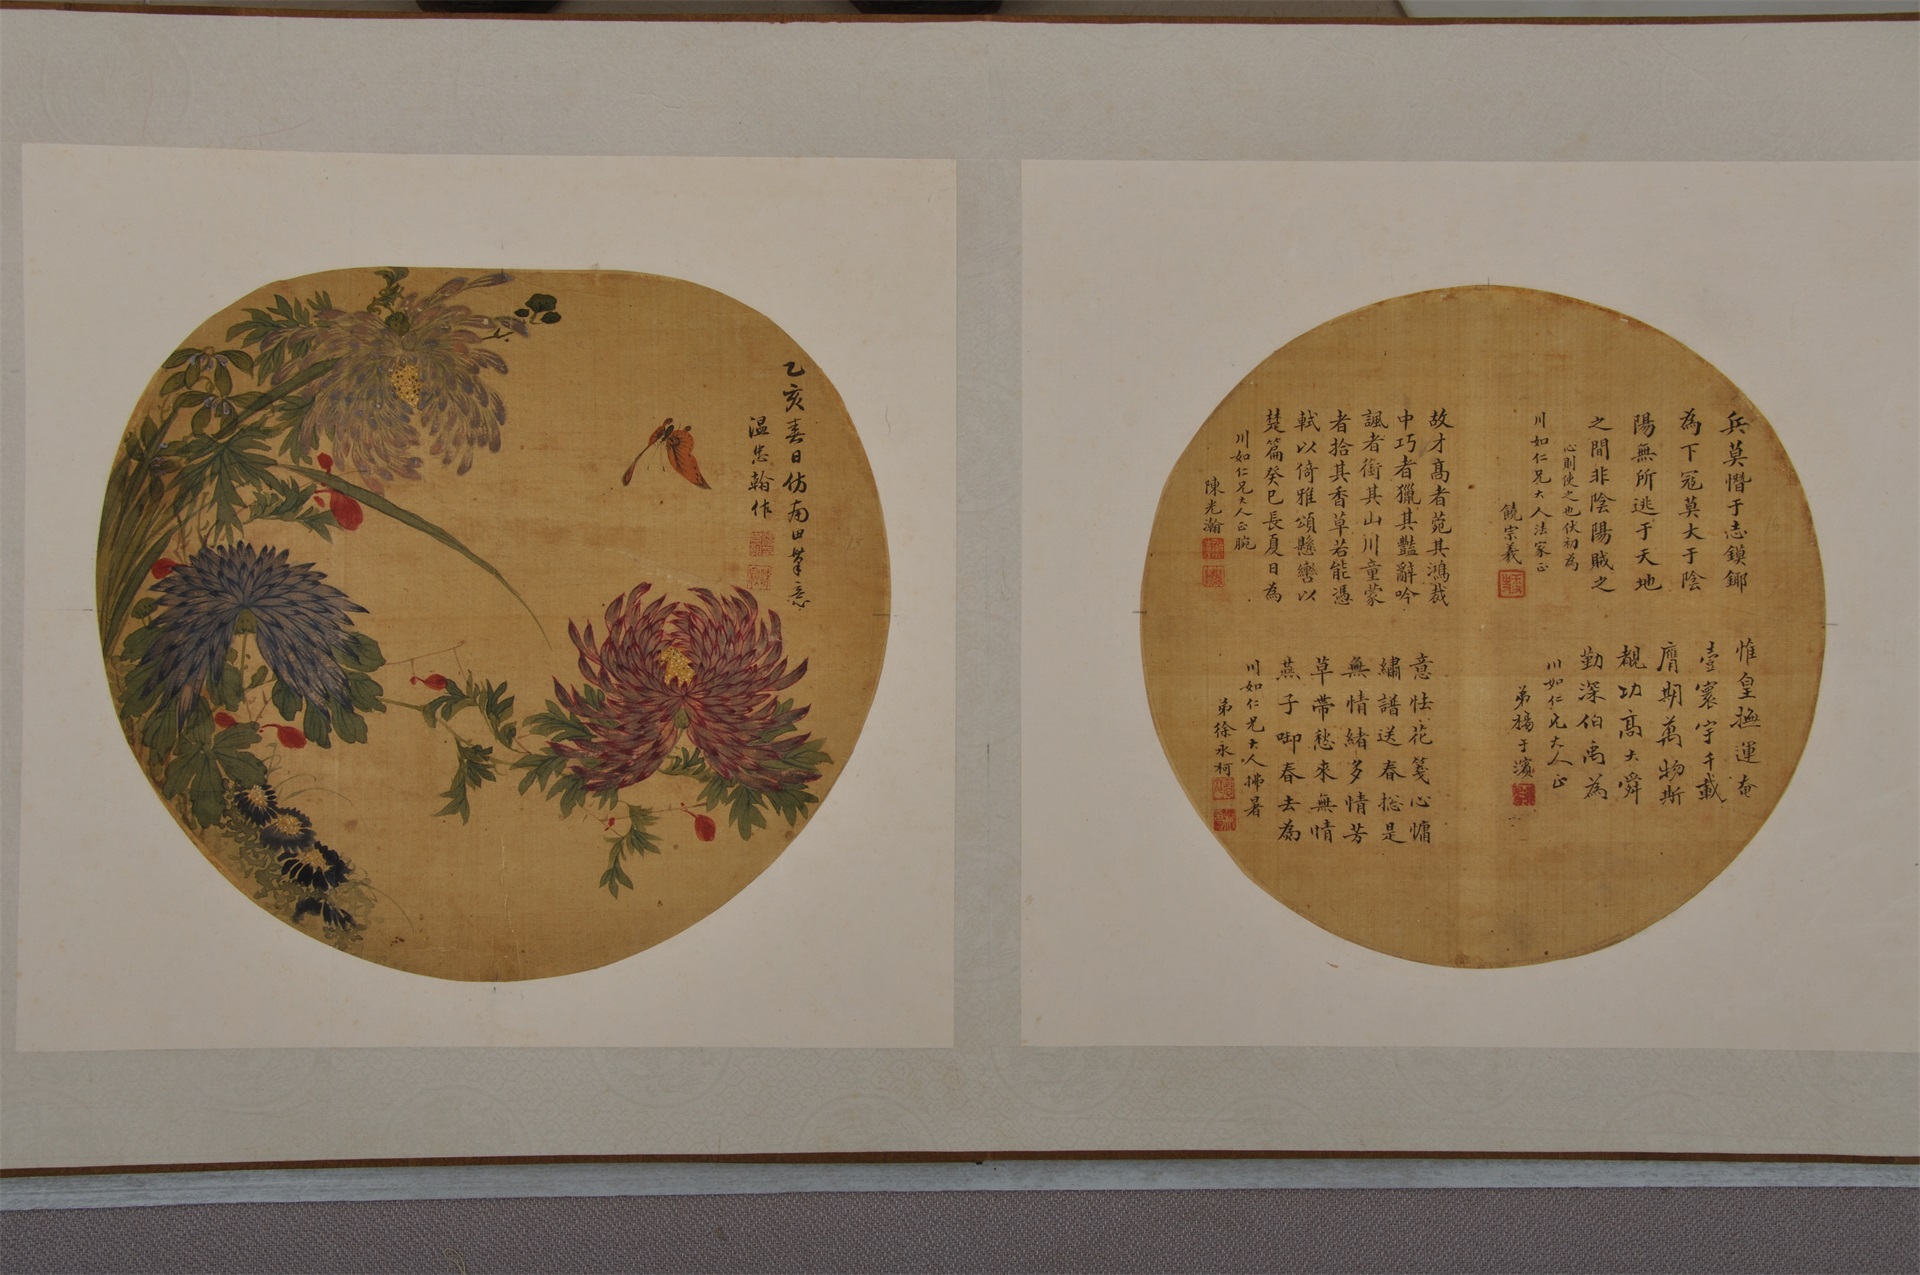 兵莫憯于志鏌鎁
為下冦莫大于陰
陽無所逃于天地
之間非陰陽賊之
心則使之也伏初為
川如仁兄大人法家正
饒宗羲
惟皇撫運奄
壹寰宇千載
膺期萬物斯
覩功高大舜
勤深伯禹為
川如仁兄大人正
弟楊于濱
故才髙者菀其鴻裁
中巧者獵其豔辭吟
諷者銜其山川童蒙
者拾其香草若能憑
軾以倚雅頌懸轡以
楚篇癸巳長夏日為
川如仁兄大人正腕
陳光瀚
意怯花箋心慵
繡譜送春捴是
無情緒多情芳
草帶愁來無情
燕子啣春去為
川如仁兄大人拂暑
弟徐永柯
乙亥春日仿南田筆意
温忠翰作